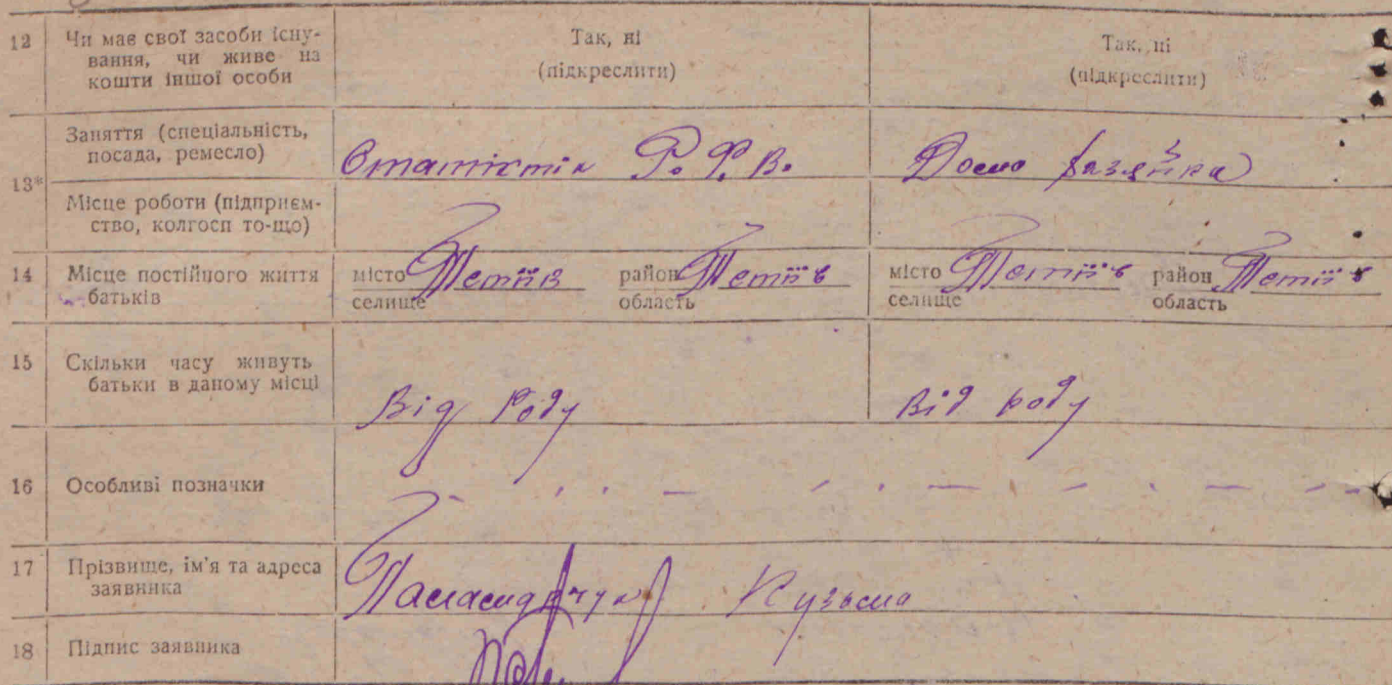 12 Чи має свої засоби існу-
вання, чи живе на
кошти іншої особи
Так, ні
(підкреслити)
Так, ні
(підкреслити)
13*
Заняття (спеціальність,
посада, ремесло)
Статістік Р. Ф. В.
Домо хазяйка
Місце роботи (підприєм-
ство, колгосп то-що)
14 Місце постійного життя
батьків
місто Тетіїв район Тетіїв
селище область
місто Тетіїв район Тетіїв
селище область
15 Скільки часу живуть
батьки в даному місці
Від Роду
Від роду
16 Особливі позначки
17 Прізвище, ім'я та адреса
заявника
Кузьма
18 Підпис заявника